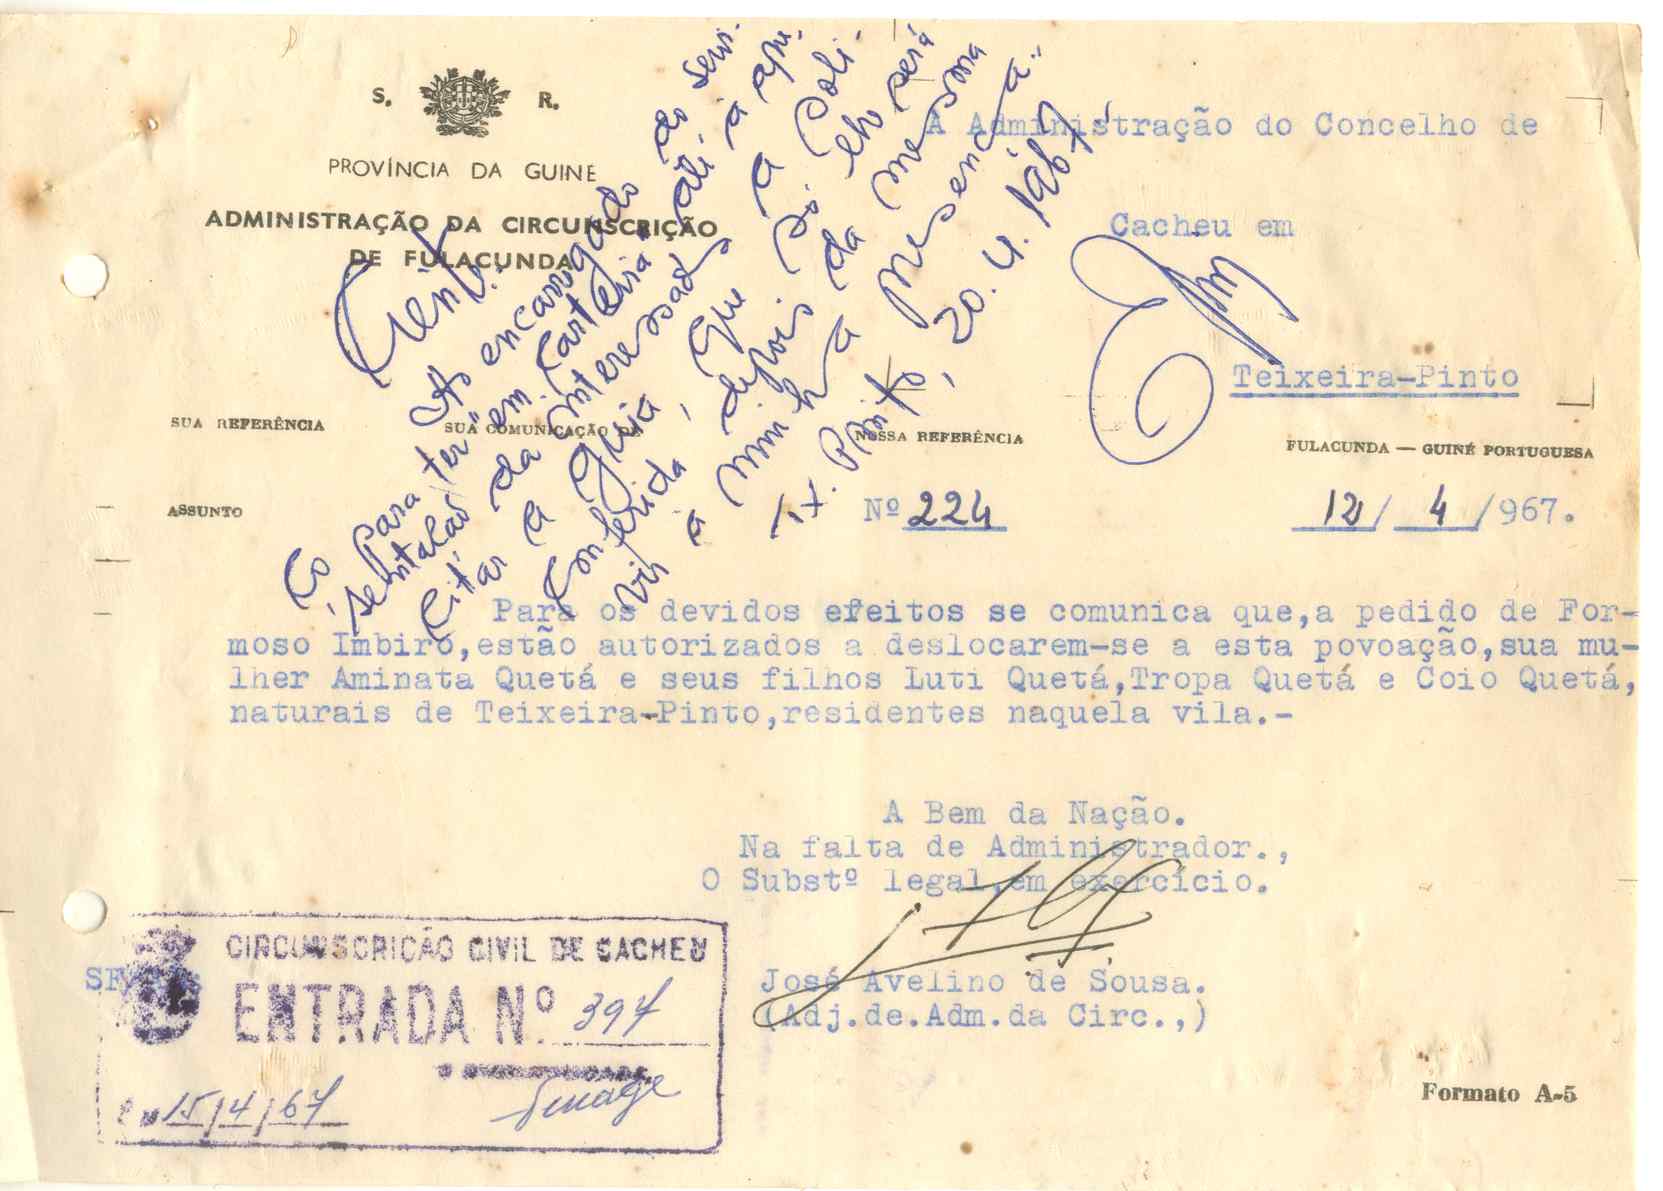 S. R.
PROVÍNCIA DA GUINÉ
ADMINISTRAÇÃO DA CIRCUNSCRIÇÃO
DE FULACUNDA
À Administração do Concelho de
Cacheu em
Teixeira-Pinto
SUA REFERÊNCIA
SUA COMUNICAÇÃO DE
NOSSA REFERÊNCIA
FULACUNDA — GUINÉ PORTUGUESA
ASSUNTO
Nº 224
12/ 4 /967.
Ao encarregado do servi-
ço para "ter em carteira" até à apre-
sentação da interessada a soli-
citar a guia, que só lho será
conferida, depois da mesma
vir à minha presença.
Tx. Pinto, 20.4.1967
Para os devidos efeitos se comunica que,a pedido de For-
moso Imbiro,estão autorizados a deslocarem-se a esta povoação,sua mu-
lher Aminata Quetá e seus filhos Luti Quetá,Tropa Quetá e Coio Quetá,
naturais de Teixeira-Pinto,residentes naquela vila.-
A Bem da Nação.
Na falta de Administrador.,
O Substº legal,em exercício.
José Avelino de Sousa.
(Adj.de.Adm.da Circ.,)
CIRCUNSCRIÇÃO CIVIL DE CACHEU
ENTRADA Nº 394
Em 15/4/67
Formato A-5